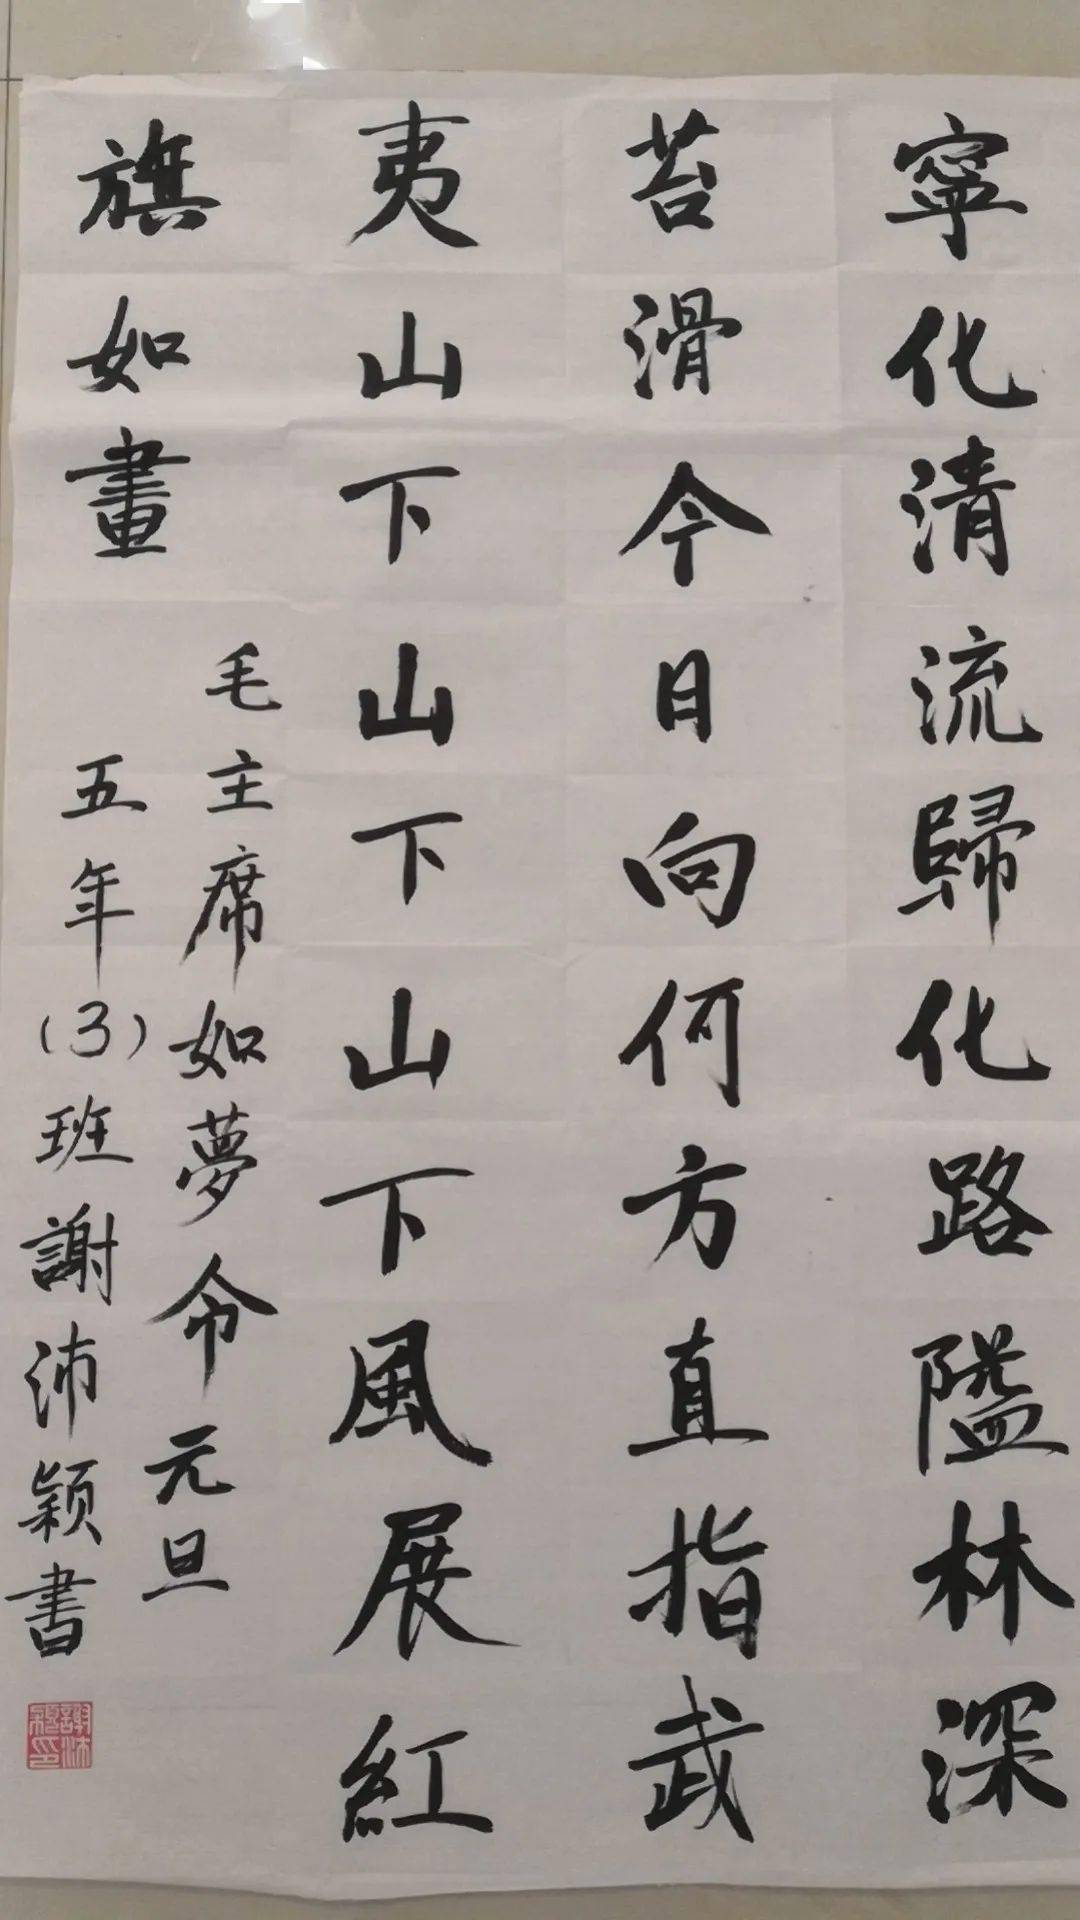 寧化清流歸化路隘林深
苔滑今日向何方直指武
夷山下山下山下風展紅
旗如畫
毛主席如夢令元旦
五年(3)班謝沛颖書
謝沛颖印